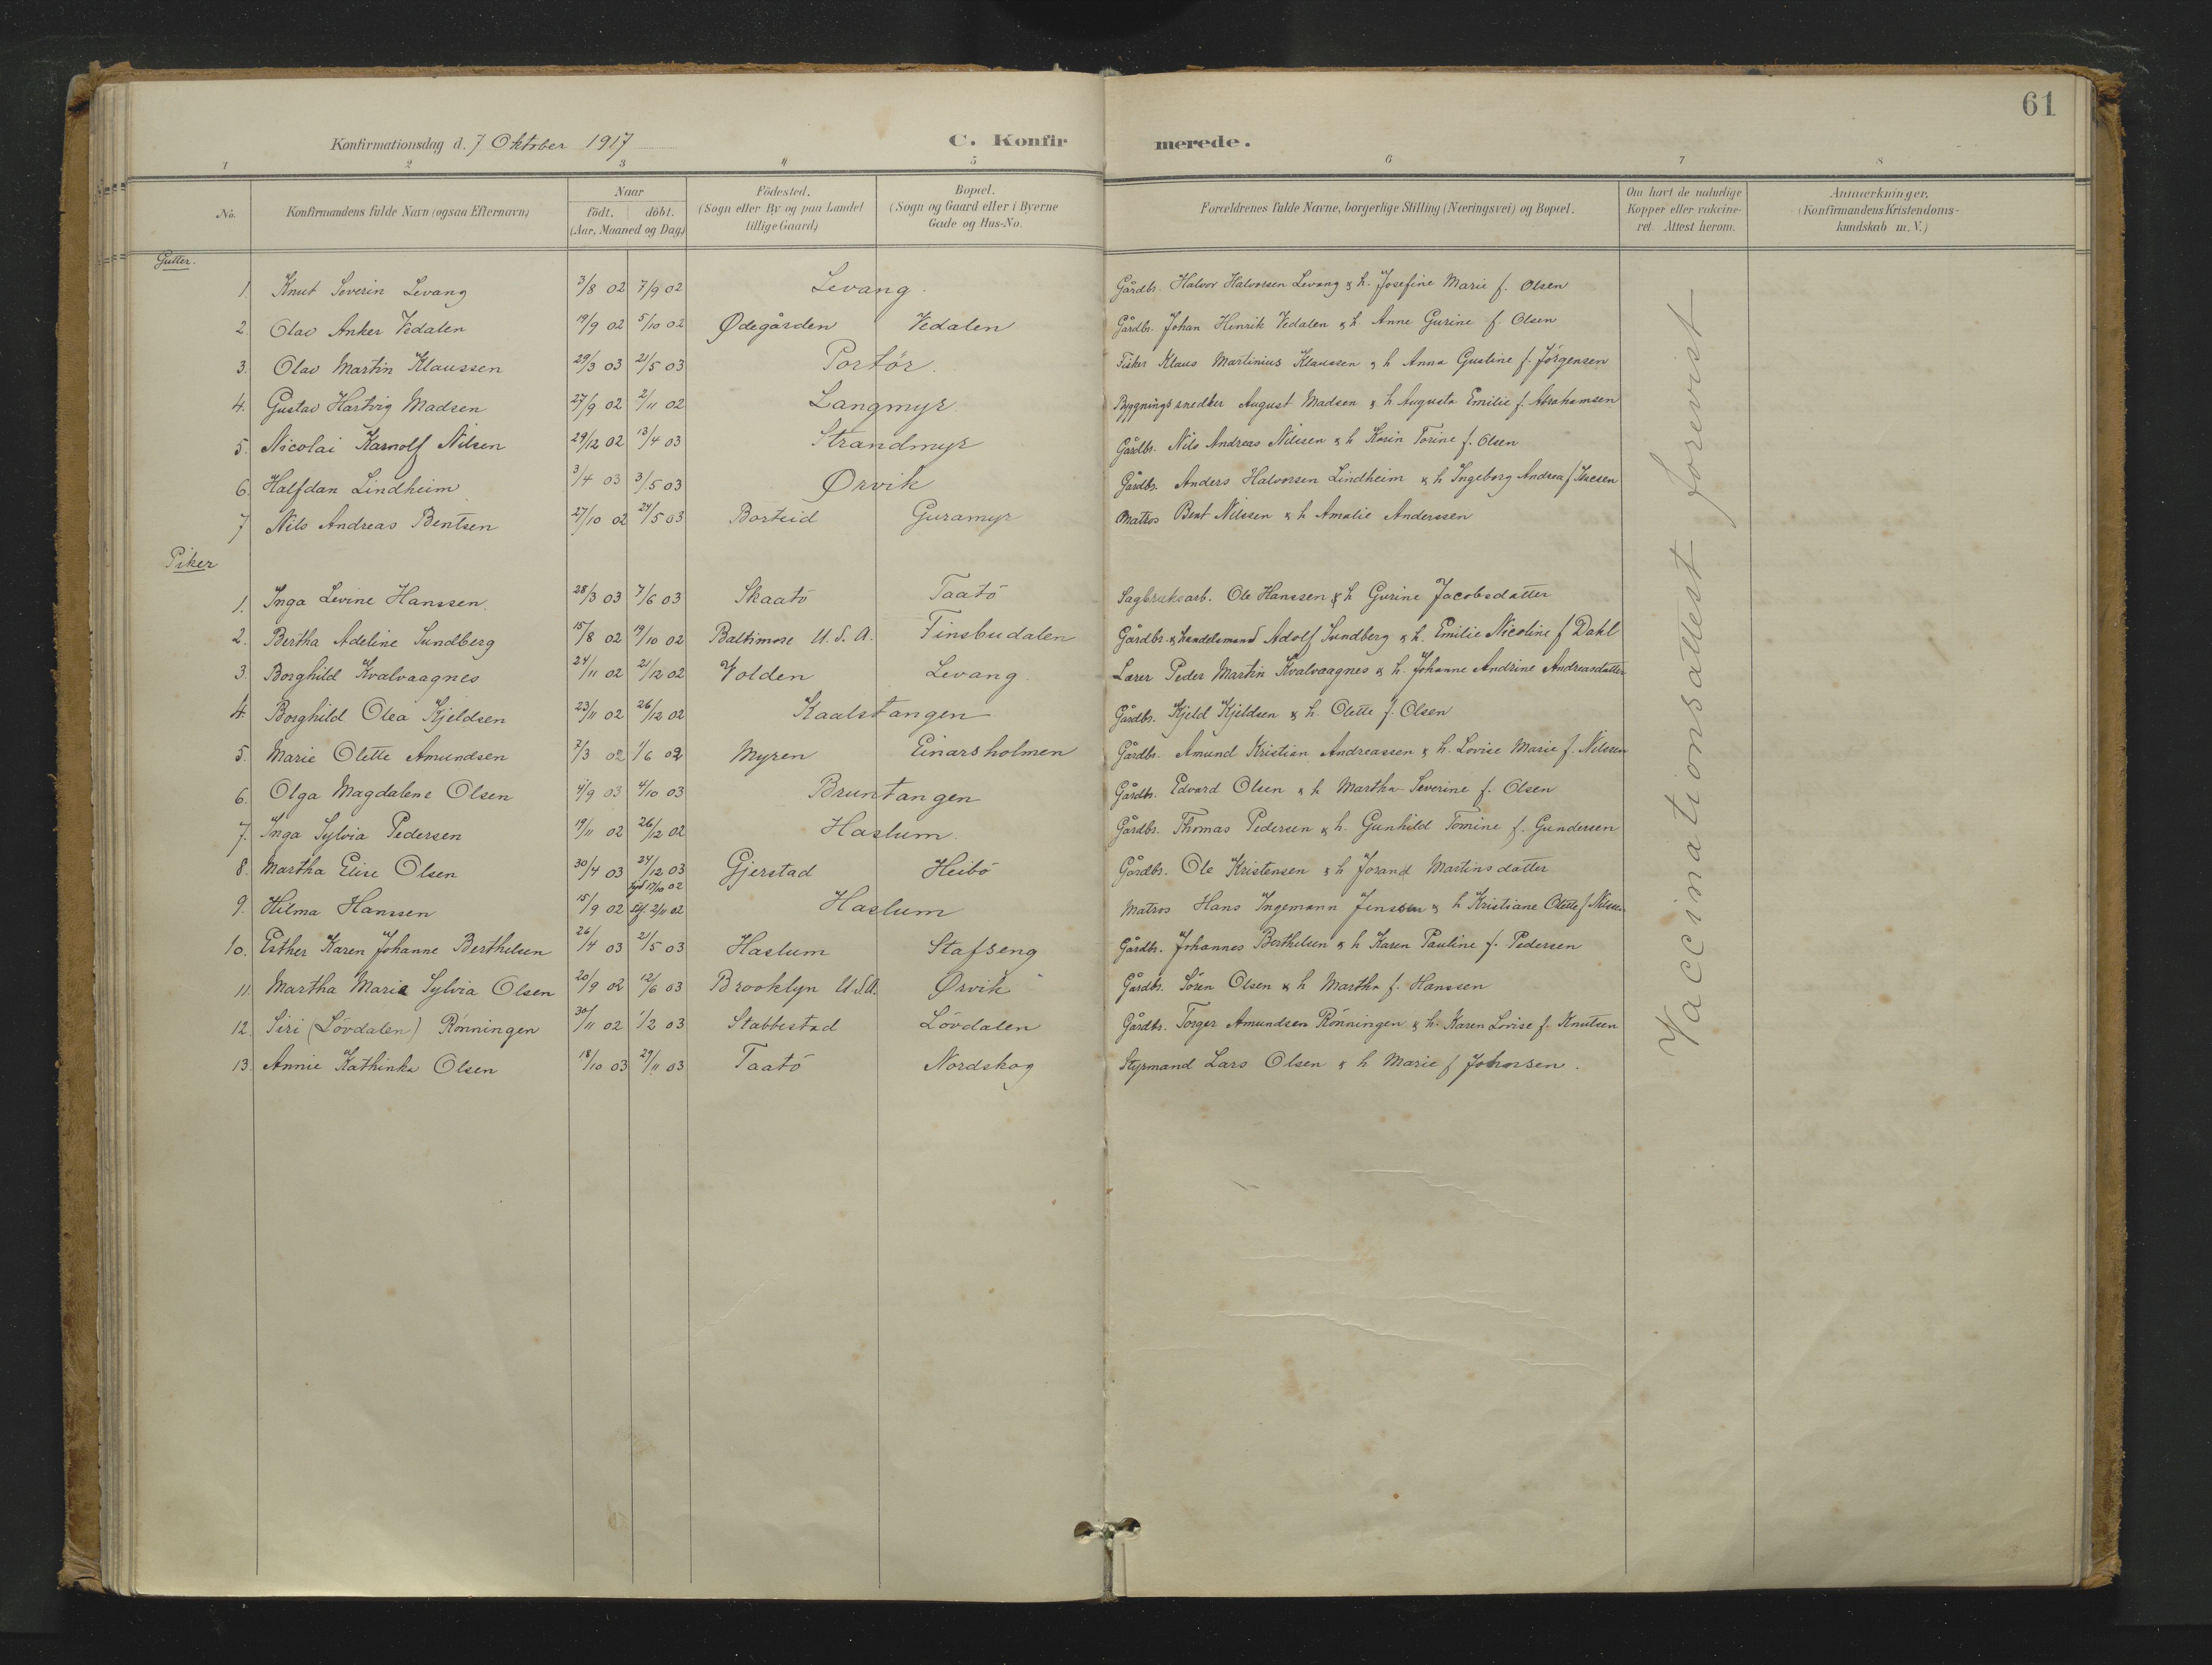 61
Konfirmationsdag d. 7 Oktober 1917 C. Konfirmerede.
1 2 3 4 5 6 7 8
No. Konfirmandens fulde Navn (ogsaa Efternavn) Naar födt. döbt. (Aar, Maaned og Dag) Födested. (Sogn eller By og paa Landet tillige Gaard) Bopæl. (Sogn og Gaard eller i Byerne Gade og Hus-No. Forældrenes fulde Navne, borgerlige Stilling (Næringsvei) og Bopæl. Om havt de naturlige Kopper eller vakcineret. Attest herom. Anmærkninger. (Konfirmandens Kristendomskundskab m. V.)
Gutter.
1. Knut Severin Levang 3/8 02 7/9 02 Levang. Gårdbr. Halvor Halvorsen Levang & h. Josefine Marie f. Olsen
2. Olav Anker Vedalen 19/9 02 5/10 02 Ødegården Vedalen Gårdbr. Johan Henrik Vedalen & h. Anne Gurine f. Olsen
3. Olav Martin Klaussen 29/3 03 21/5 03 Portör. Fisker Klaus Martinius Klaussen & h Anna Gustine f. Jörgensen
4. Gustav Hartvig Madsen 27/9 02 2/11 02 Langmyr Bygningssnedker August Madsen & h Augusta Emilie f. Abrahamsen
5. Nicolai Karnolf Nilsen 29/12 02 13/4 03 Strandmyr Gårdbr. Nils Andreas Nilssen & h Karin Torine f. Olsen
6. Halfdan Lindheim 3/4 03 3/5 03 Ørvik Gårdbr. Anders Halvorsen Lindheim & h Ingeborg Andrea f
7 Nils Andreas Bentsen 27/10 02 24/5 03 Borteid Guramyr Matros Bent Nilssen & h Amalie Anderssen
Piker
1. Inga Levine Hanssen. 28/3 03 7/6 03 Skaatö Taatö Sagbruksarb. Ole Hanssen & h Gurine Jacobsdatter
2. Bertha Adeline Sundberg 15/8 02 19/10 02 Baltimore U.S.A. Finsbudalen Gårdbr. & handelsmand Adolf Sundberg & h. Emilie Nicoline f Dahl
3. Borghild Kvalvaagnes 24/11 02 21/12 02 Volden Levang. Lærer Peder Martin Kvalvaagnes & h. Johanne Andrine Andreasdatter
4. Borghild Olea Kjeldsen 23/11 02 26/12 02 Kaalstangen Gårdbr. Kjeld Kjeldsen & h. Olette f. Olsen
5. Marie Olette Amundsen 7/3 02 1/6 02 Myren Einarsholmen Gårdbr. Amund Kristian Andreassen & h. Lovise Marie f. Nilssen
6. Olga Magdalene Olsen 4/9 03 4/10 03 Bruntangen Gårdbr. Edvard Olsen & h Martha Severine f. Olsen
7. Inga Sylvia Pedersen 19/11 02 26/12 02 Haslum. Gårdbr. Thomas Pedersen & h. Gunhild Tomine f. Gundersen
8. Martha Elise Olsen 30/4 03 24/12 03 Gjerstad Heibö Gårdbr. Ole Kristensen & h Jorand Martinsdatter
9. Hilma Hanssen 15/9 02 17/10 02 2/11 02 Haslum Matros Hans Ingemann Jenssen & h Kristiane Olette f Nilssen
10. Esther Karen Johanne Berthelsen 26/4 03 21/5 03 Haslum Stafseng Gårdbr. Johannes Berthelsen & h Karen Pauline f. Pedersen
11. Martha Marie Sylvia Olsen 20/9 02 12/6 03 Brooklyn U.S.A. Ørvik Gårdbr. Sören Olsen & h Martha f. Hanssen
12. Siri (Lövdalen) Rönningen 30/11 02 1/2 03 Stabbestad Lövdalen Gårdbr. Torger Amundsen Rönningen & h. Karen Lovise f. Knutsen
13. Annie Kathinka Olsen 18/10 03 29/11 03 Taatö Nordskog Styrmand Lars Olsen & h Marie f Johnsen.
Vaccinationsattest forevist